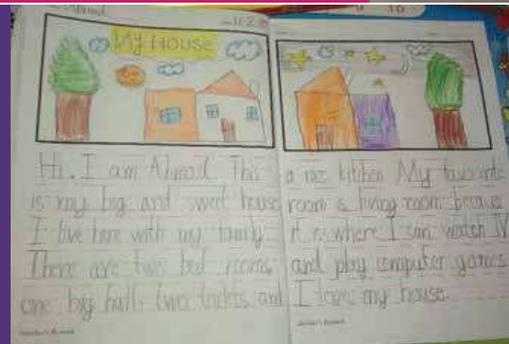 My House
Hi. I am Ahmad This
is my big and sweet house
I live here with my family
There are two bed rooms
one big hall, two toilets and
a nice kitchen My favourite
room is living room because
it is where I can watch TV
and play computer games
I love my house.